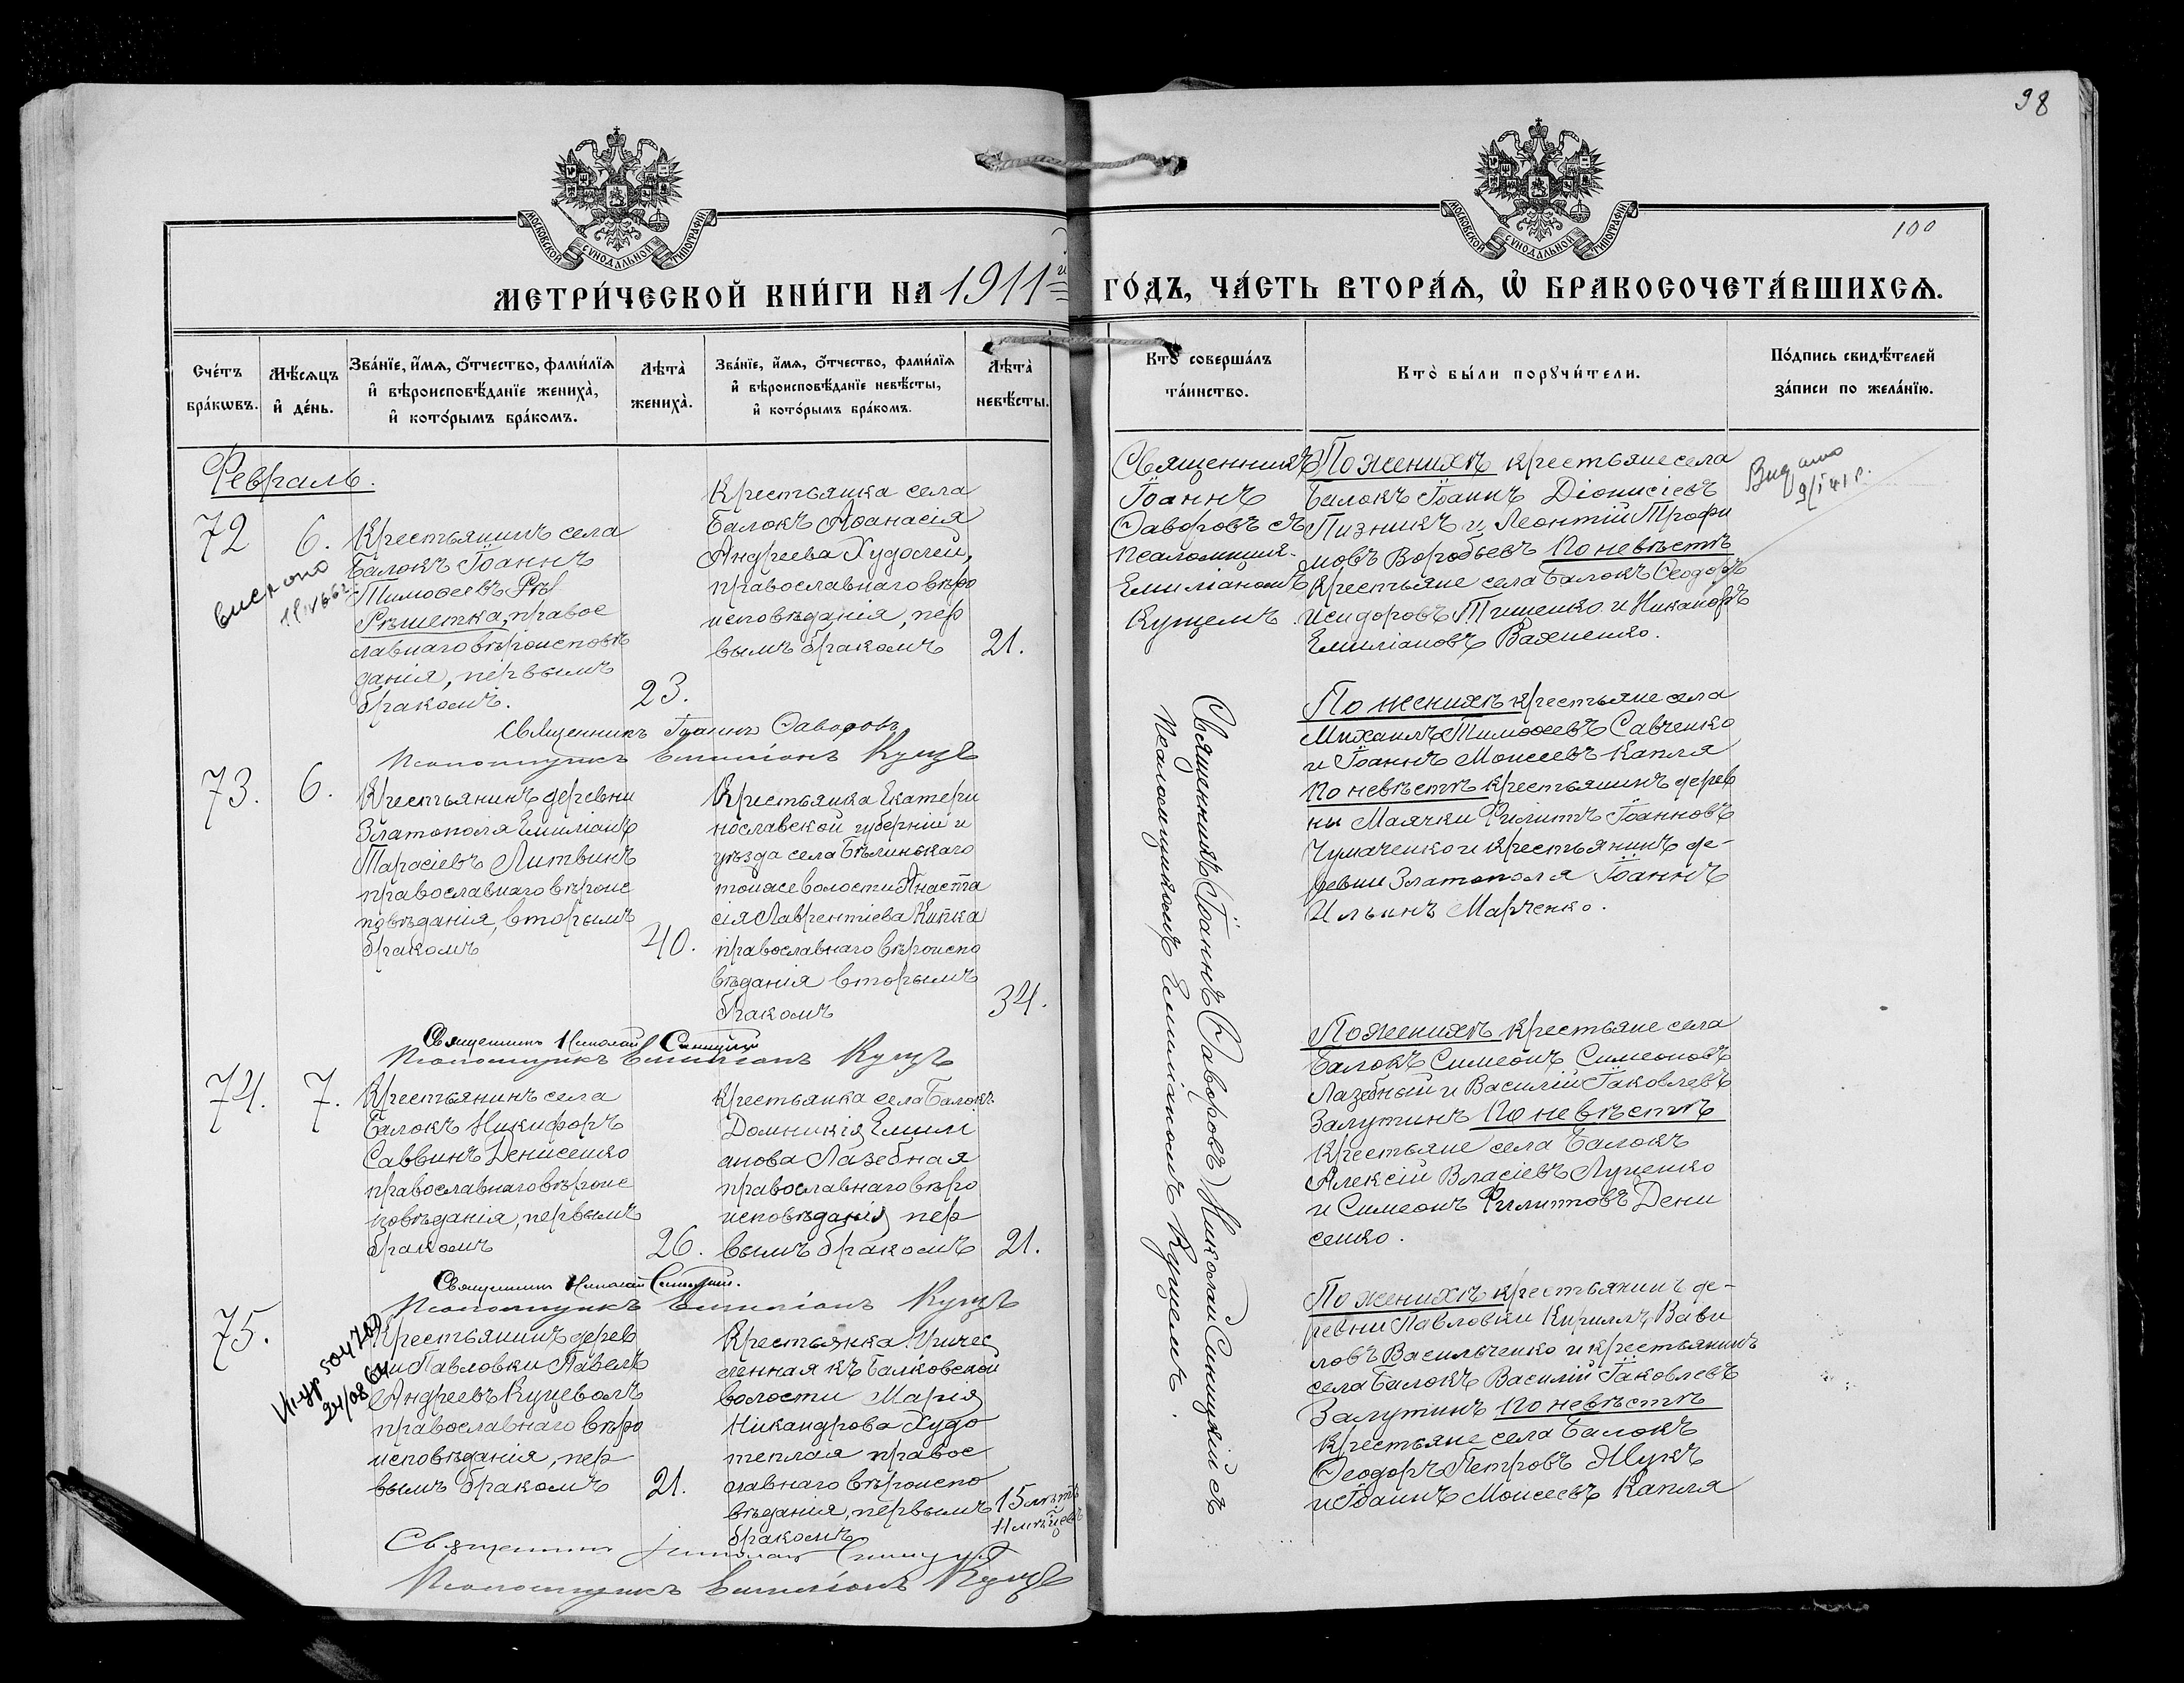 98
100
МОСКОВСКОЙ СѴНОДАЛЬНОЙ ТИПОГРАФІИ
МОСКОВСКОЙ СѴНОДАЛЬНОЙ ТИПОГРАФІИ
МЕТРИ́ЧЕСКОЙ КНИ́ГИ НА 1911й ГО́ДЪ, ЧА́СТЬ ВТОРА́Ѧ, Ѡ҆ БРАКОСОЧЕТА́ВШИХСѦ.
Сче́тъ
бра́кѡвъ.
Мѣ́сяцъ
и҆ де́нь.
Зва́нїе, и҆́мѧ, ѻ҆́тчество, фами́лїѧ
и҆ вѣроисповѣ́данїе жениха̀,
и҆ кото́рымъ бра́комъ.
Лѣта̀
жениха̀.
Зва́нїе, и҆́мѧ, ѻ҆́тчество, фами́лїѧ
и҆ вѣроисповѣ́данїе невѣ́сты,
и҆ кото́рымъ бра́комъ.
Лѣта̀
невѣ́сты.
Кто̀ соверша́лъ
та́инство.
Кто̀ бы́ли порꙋчи́тели.
По́дпись свидѣ́телей
за́писи по жела́нїю.
Февраль.
72
6.
Крестьянинъ села
Балокъ Іоаннъ
Тимоѳеевъ Рѣ
Рѣшетка, правос
лавнаго вѣроисповѣ
данія, первымъ
бракомъ.
23.
Крестьянка села
Балокъ Аѳанасія
Андреева Худолей,
православнаго вѣро
исповѣданія, пер
вымъ бракомъ
21.
Священникъ
Іоаннъ
Ѳаворовъ съ
псаломщик.
Емиліаномъ
Куцемъ.
По женихѣ крестьяне села
Балокъ Іоаннъ Діонисіевъ
Пизникъ и Леонтій Трофи
мовъ Воробьевъ По невѣстѣ
Крестьяне села Балокъ Ѳеодоръ
Исидоровъ Тищенко и Никаноръ
Емиліановъ Важненко.
Видано
9/I 41 г.
Священникъ Іоаннъ Ѳаворовъ
Псаломщикъ Емиліанъ Куцъ
73.
6.
Крестьянинъ деревни
Златополя Емиліанъ
Тарасіевъ Литвинъ
православнаго вѣроис
повѣданія, вторымъ
бракомъ
40.
Крестьянка Екатери
нославской губерніи и
уѣзда села Бѣлинькаго
тоияже волости Анаста
сія Лаврентіева Кипка
православнаго вѣроиспо
вѣданія вторымъ
бракомъ
34.
По женихѣ крестьяне села
Михаилъ Тимоѳеевъ Савченко
и Іоаннъ Моисеевъ Капля
По невѣстѣ крестьянинъ дерев
ни Маячки Филиппъ Іоанновъ
Чумаченко и крестьянинъ де-
ревни Златополя Іоаннъ
Ильинъ Марченко.
Священникъ Николай Синицкій
Псаломщикъ Емиліанъ Куцъ
74.
7.
Крестьянинъ села
Балокъ Никифоръ
Саввинъ Денисенко
православнаго вѣроис
повѣданія, первымъ
бракомъ
26.
Крестьянка села Балокъ
Домникія Емили
анова Лазебная
православнаго вѣро
исповѣданія пер
вымъ бракомъ
21.
По женихѣ крестьяне села
Балокъ Симеонъ Симеоновъ
Лазебный и Василій Іаковлевъ
Залутинъ По невѣстѣ
Крестьяне села Балокъ
Алексій Власіевъ Луценко
и Симеонъ Филипповъ Дени
сенко.
Священникъ Николай Синицкій.
Псаломщикъ Емиліанъ Куцъ
75.
Крестьянинъ дерев
ни Павловки Павелъ
Андреевъ Куцеволъ
православнаго вѣро
исповѣданія, пер
вымъ бракомъ
21.
Крестьянка причис
ленная къ Балковской
волости Марія
Никандрова Худо
теплая правос
лавнаго вѣроиспо
вѣданія, первымъ
бракомъ
15 лѣтъ
11 мѣсяцевъ
По женихѣ крестьянинъ де-
ревни Павловки Кириллъ Вави
ловъ Васильченко и крестьянинъ
села Балокъ Василій Іаковлевъ
Залутинъ По невѣстѣ
Крестьяне села Балокъ
Ѳеодоръ Петровъ Жукъ
и Іоаннъ Моисеевъ Капля
Священникъ Николай Синицкій
Псаломщикъ Емиліанъ Куцъ
Священникъ (Іоаннъ Ѳаворовъ) Николай Синицкій съ
псаломщикомъ Емиліаномъ Куцемъ.